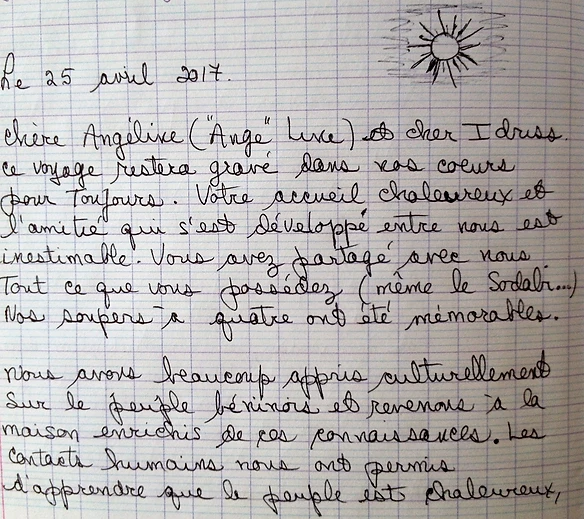 Le 25 avril 2017.
Chère Angéline ("Ange" Line) et cher Idriss.
Ce voyage restera gravé dans nos coeurs
pour Toujours. Votre accueil chaleureux et
l'amitié qui s'est développé entre nous est
inestimable. Vous avez partagé avec nous
Tout ce que vous possédez (même le Sodabi...)
Nos soupers à quatre ont été mémorables.
Nous avons beaucoup appris culturellement
sur le peuple béninois et revenons à la
maison enrichis de ces connaissances. Les
contacts humains nous ont permis
d'apprendre que le peuple est chaleureux,